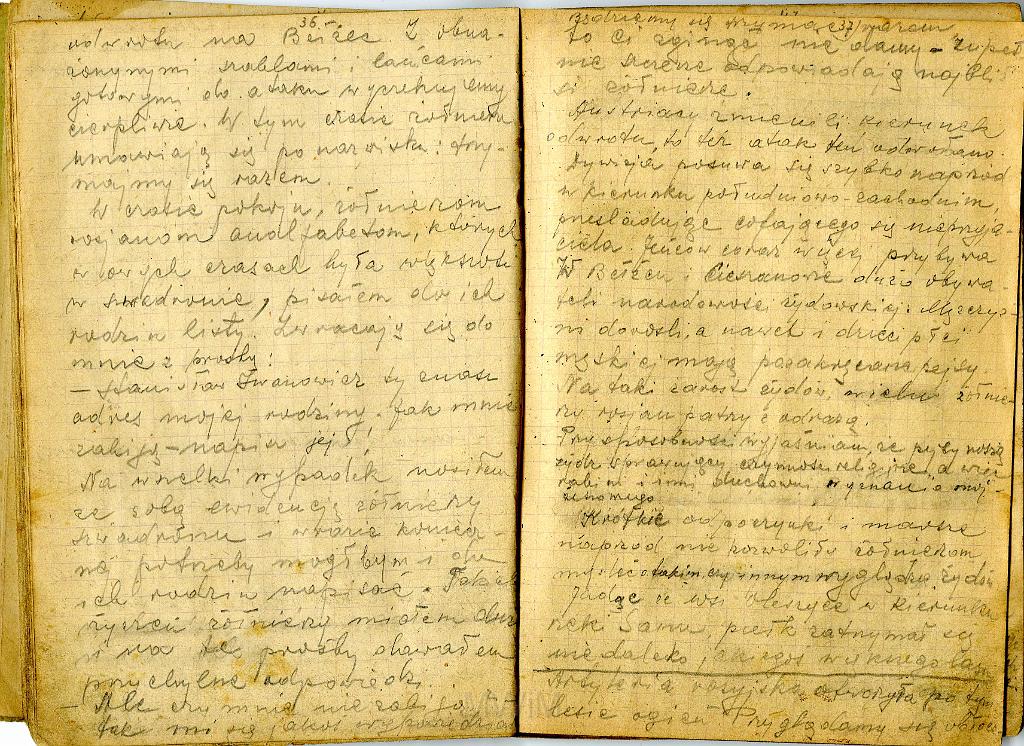 36
odwrotu na Bełżec Z obna-
żonymi szablami i lancami
gotowymi do ataku wyczekujemy
cierpliwie. W tym czasie żołnierze
umawiają się po nazwisku: trzy-
majmy się razem.
W czasie pokoju, żołnierzom
rosjanom analfabetom, których
w owych czasach była większość
w szwadronie, pisałem do ich
rodzin listy. Zwracają się do
mnie z prośbą:
— Stanisław Iwanowicz ty znasz
adres mojej rodziny. Jak mnie
zabiją — napisz jej!
Na wszelki wypadek nosiłem
ze sobą ewidencję żołnierzy
szwadronu i w razie koniecz-
nej potrzeby mógłbym i do
ich rodzin napisać. Takich
życzeń żołnierzy miałem dużo
i na te prośby dawałem
przychylne odpowiedzi.
— Ale czy mnie nie zabiją
tak mi się jakoś
37
będziemy się trzymać razem
to Ci zginąć nie damy — zupeł
nie szczerze odpowiadają najbli
si żołnierze.
Austriacy zmienili kierunek
odwrotu, to też atak ten odwołano.
Dywizja posuwa się szybko naprzód
w kierunku południowo-zachodnim,
prześladując cofającego się nieprzyja-
ciela. Jeńców coraz więcej przybywa
W Bełżcu i Cieszanowie dużo obywa-
teli narodowości żydowskiej. Mężczyź-
ni dorośli, a nawet i dzieci płci
męskiej mają pozakręcane pejsy.
Na taki zarost żydów, wielu żołnie-
rzy rosjan patrzy z odrazą.
Przy sposobności wyjaśniam, że pejsy noszą
żydzi sprawujący czynności religijne, a więc
rabini i inni duchowni wyznania moj-
żeszowego
Krótkie odpoczynki i marsze
naprzód nie pozwoliły żołnierzom
myśleć o takim czy innym wyglądzie żydów
Jadąc ze wsi Oleszyce w kierunku
rzeki Sanu, pułk zatrzymał się
niedaleko jakiegoś większego lasu
Artyleria rosyjska otworzyła po tym
lesie ogień Przyglądamy się